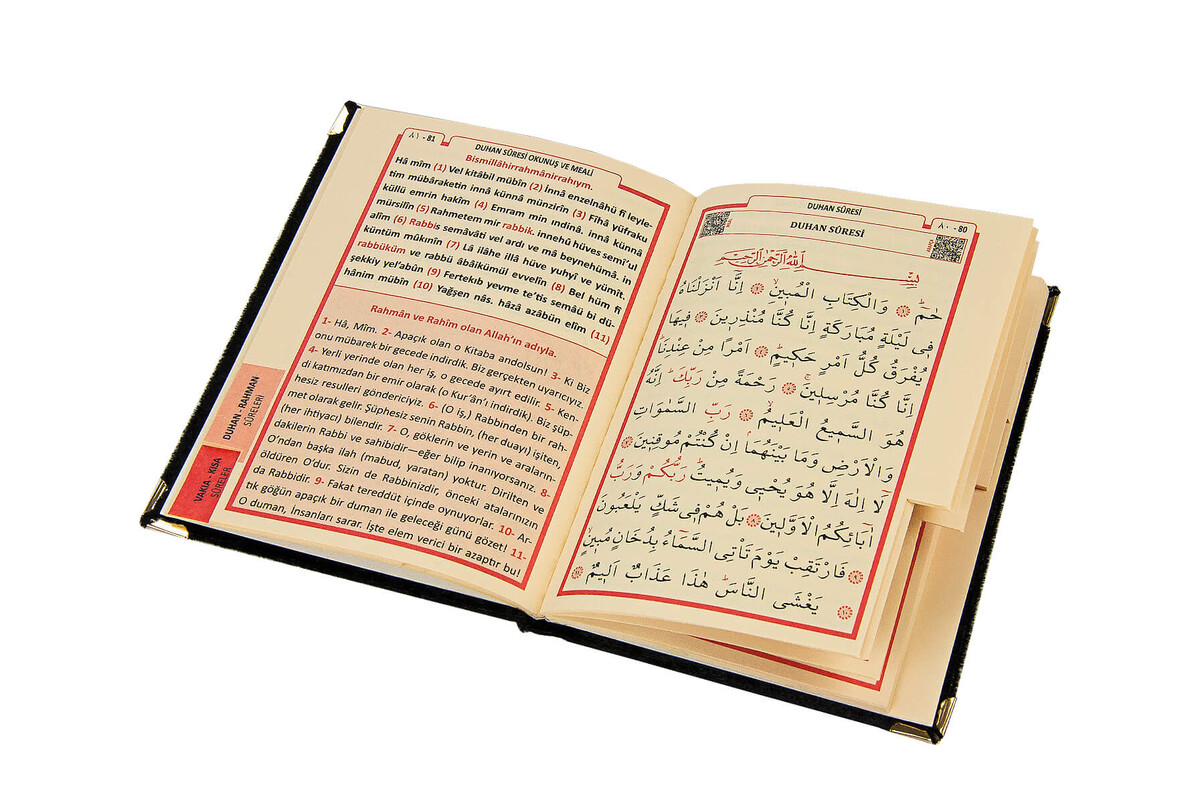 ٨١ - 81
DUHAN SÛRESİ OKUNUŞ VE MEALİ
Bismillâhirrahmânirrahıym.
Hâ mîm (1) Vel kitâbil mübîn (2) İnnâ enzelnâhü fî leyle-
tim mübâraketin innâ künnâ münzirîn (3) Fîhâ yüfraku
küllü emrin hakîm (4) Emram min ındinâ. innâ künnâ
mürsilîn (5) Rahmetem mir rabbik. innehû hüves semî'ul
alîm (6) Rabbis semâvâti vel ardı ve mâ beynehümâ. in
küntüm mûkınîn (7) Lâ ilâhe illâ hüve yuhyî ve yümît.
rabbüküm ve rabbü âbâikümül evvelîn (8) Bel hüm fî
şekkiy yel'abûn (9) Fertekıb yevme te'tis semâü bi dü-
hânim mübîn (10) Yağşen nâs. hâzâ azâbün elîm (11)
Rahmân ve Rahîm olan Allah'ın adıyla.
1- Hâ, Mîm. 2- Apaçık olan o Kitaba andolsun! 3- Ki Biz
onu mübarek bir gecede indirdik. Biz gerçekten uyarıcıyız.
4- Yerli yerinde olan her iş, o gecede ayırt edilir. 5- Ken-
di katımızdan bir emir olarak (o Kur'ân'ı indirdik). Biz şüp-
hesiz resulleri göndericiyiz. 6- (O iş,) Rabbinden bir rah-
met olarak gelir. Şüphesiz senin Rabbin, (her duayı) işiten,
(her ihtiyacı) bilendir. 7- O, göklerin ve yerin ve araların-
dakilerin Rabbi ve sahibidir—eğer bilip inanıyorsanız. 8-
O'ndan başka ilah (mabud, yaratan) yoktur. Dirilten ve
öldüren O'dur. Sizin de Rabbinizdir, önceki atalarınızın
da Rabbidir. 9- Fakat tereddüt içinde oynuyorlar. 10- Ar-
tık göğün apaçık bir duman ile geleceği günü gözet! 11-
O duman, İnsanları sarar. İşte elem verici bir azaptır bu!
DUHAN - RAHMAN
SÛRELERİ
VAKIA - KISA
SÛRELER
DUHAN SÛRESİ
٨٠ - 80
DUHAN SÛRESİ
بِسْمِ اللّٰهِ الرَّحْمٰنِ الرَّحٖيمِ
حٰمٓ ۚ ﴿١﴾ وَالْكِتَابِ الْمُبٖينِ ۙ ﴿٢﴾ اِنَّٓا اَنْزَلْنَاهُ
فٖي لَيْلَةٍ مُبَارَكَةٍ اِنَّا كُنَّا مُنْذِرٖينَ ﴿٣﴾ فٖيهَا
يُفْرَقُ كُلُّ اَمْرٍ حَكٖيمٍ ۙ ﴿٤﴾ اَمْرًا مِنْ عِنْدِنَا ؕ
اِنَّا كُنَّا مُرْسِلٖينَ ۚ ﴿٥﴾ رَحْمَةً مِنْ رَبِّكَ ؕ اِنَّهُ
هُوَ السَّمٖيعُ الْعَلٖيمُ ۙ ﴿٦﴾ رَبِّ السَّمٰوَاتِ
وَالْاَرْضِ وَمَا بَيْنَهُمَا ۘ اِنْ كُنْتُمْ مُوقِنٖينَ ﴿٧﴾
لَٓا اِلٰهَ اِلَّا هُوَ يُحْيٖي وَيُمٖيتُ ؕ رَبُّكُمْ وَرَبُّ
اٰبَٓائِكُمُ الْاَوَّلٖينَ ﴿٨﴾ بَلْ هُمْ فٖي شَكٍّ يَلْعَبُونَ
﴿٩﴾ فَارْتَقِبْ يَوْمَ تَأْتِي السَّمَٓاءُ بِدُخَانٍ مُبٖينٍ
﴿١٠﴾ يَغْشَى النَّاسَ ؕ هٰذَا عَذَابٌ اَلٖيمٌ ﴿١١﴾